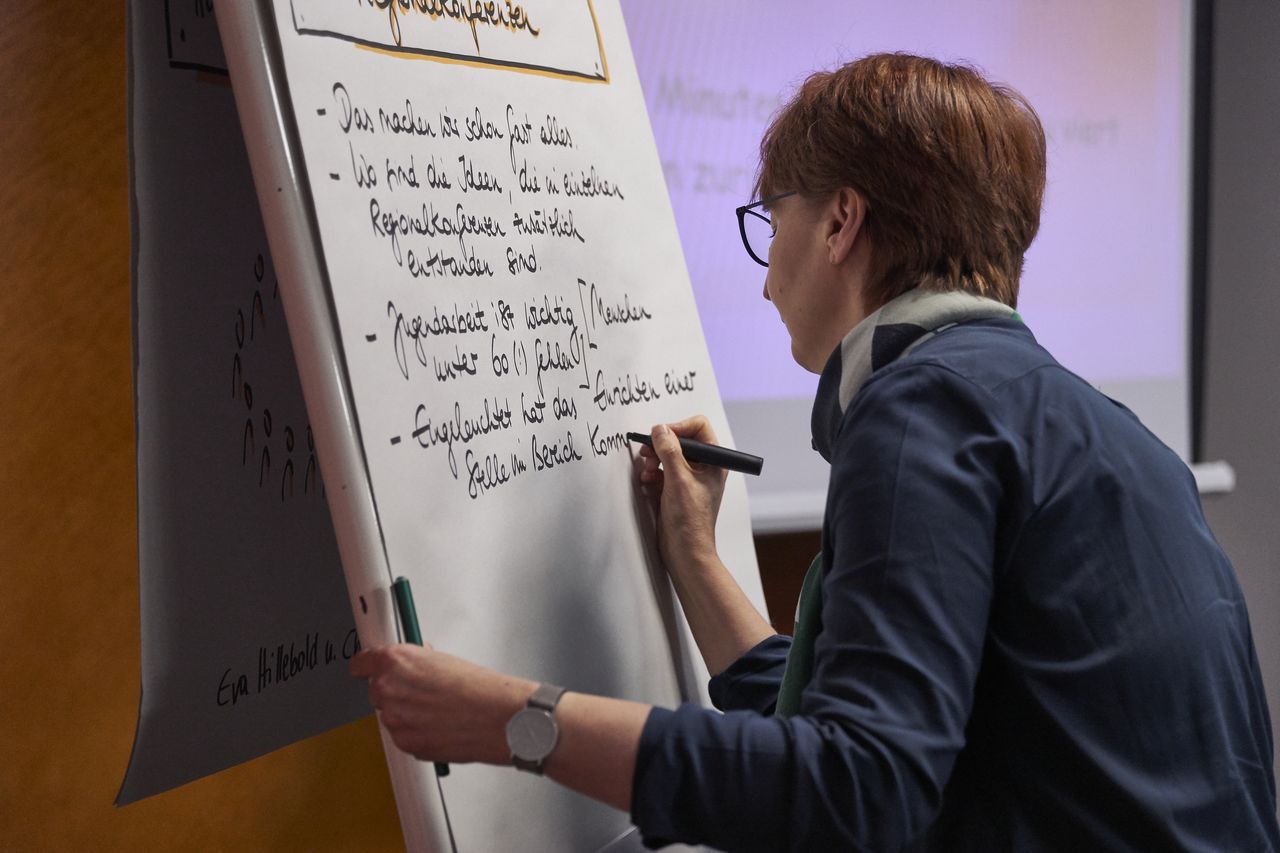 Regionalkonferenzen
- Das machen wir schon fast alles.
- Wo sind die Ideen, die in einzelnen
Regionalkonferenzen zusätzlich
entstanden sind.
- Jugendarbeit ist wichtig [ Menschen
unter 60 (!) fehlen ]
- Eingeleuchtet hat das Einrichten einer
Stelle im Bereich Komm
Eva Hillebold u. Ch
Minuten
viert
n zur